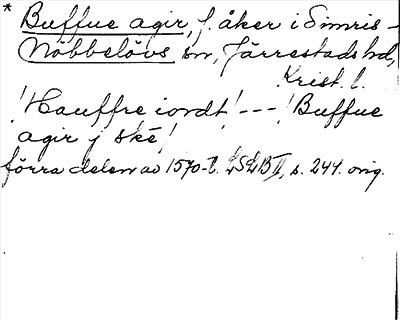 * Buffue agir, f. åker i Simris-
Nöbbelövs sn, Järrestads hd,
Krist. l.
! Hauffre iordt! --- ! Buffue
agir j ské!
förra delen av 1570-t. LSLB II, s. 244. orig.